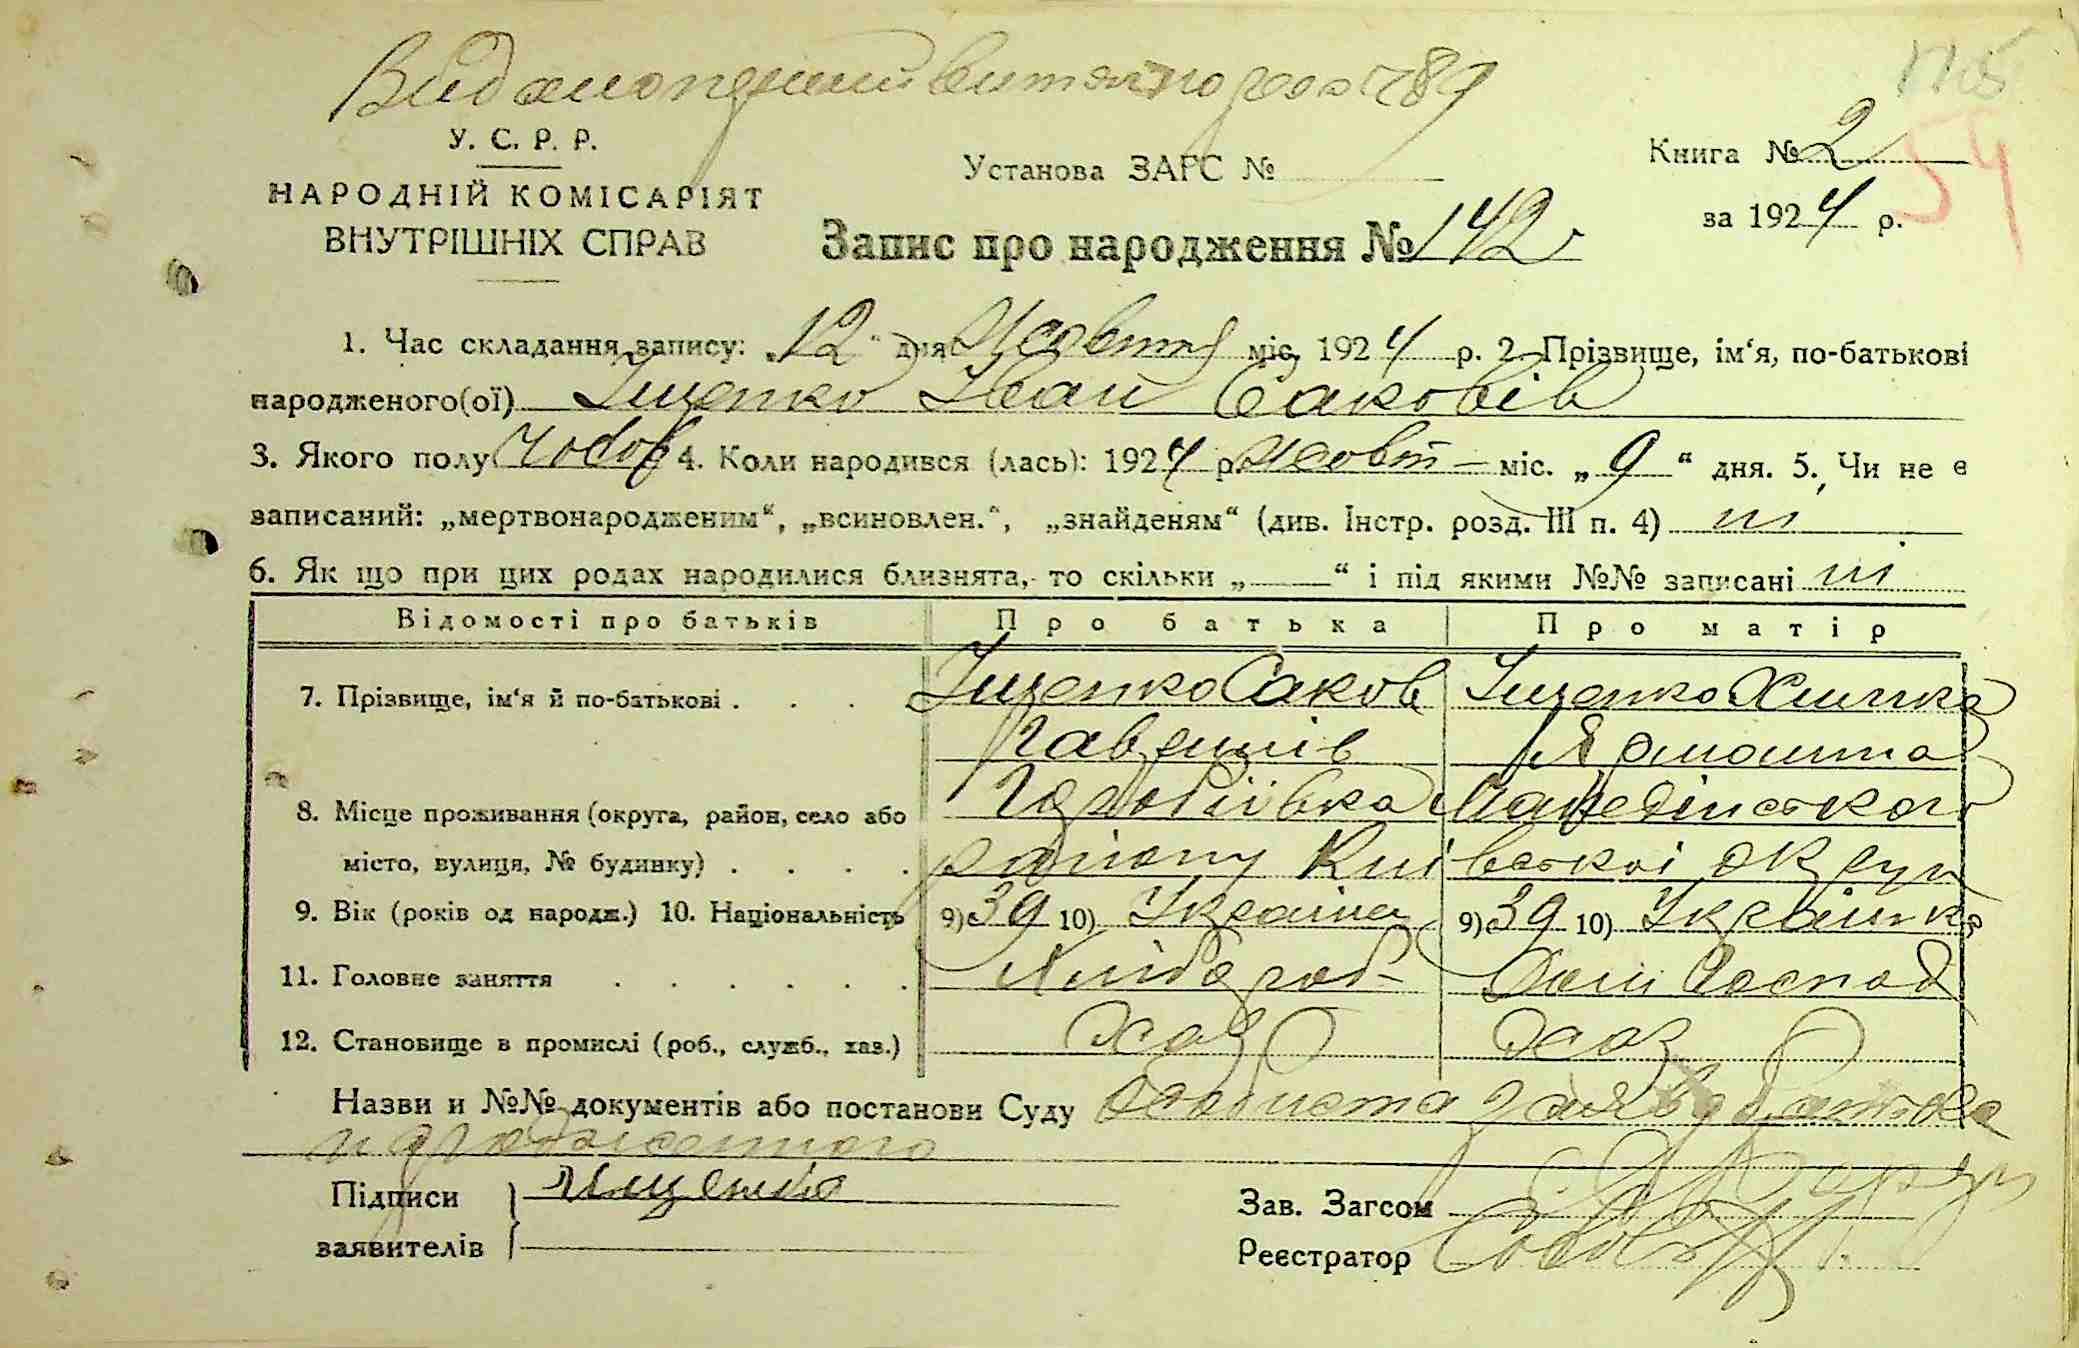 Видано первий витяг по реэ 789
У. С. Р. Р.
НАРОДНІЙ КОМІСАРІЯТ
ВНУТРІШНІХ СПРАВ
Установа ЗАГС №
Книга № 2
54
за 1924 р.
Запис про народження № 142
1. Час складання запису: „12“ дня Жовтня міс. 1924 р. 2. Прізвище, ім‘я, по-батькові
народженого(ої) Іщенко Іван Саковів
3. Якого полу чолов 4. Коли народився (лась): 1924 р. жовт міс. „9“ дня. 5. Чи не є
записаний: „мертвонародженим“, „всиновлен.“, „знайденям“ (див. Інстр. розд. III п. 4) ні
6. Як що при цих родах народилися близнята, то скільки „—“ і під якими №№ записані ні
Відомості про батьків Про батька Про матір
7. Прізвище, ім‘я й по-батькові . . . Іщенко Саков Іщенко Химка
8. Місце проживання (округа, район, село або
місто, вулиця, № будинку) . . . . району Київської округи
9. Вік (років од народж.) 10. Національність 9) 39 10) Україна 9) 39 10) Українка
11. Головне заняття . . . . . . Хлібороб Дом Господ
12. Становище в промислі (роб., служб., хаз.) хаз хаз
Назви и №№ документів або постанови Суду Особиста заява батька
народженного
Підписи Ищенко
заявителів
Зав. Загсом
Реєстратор